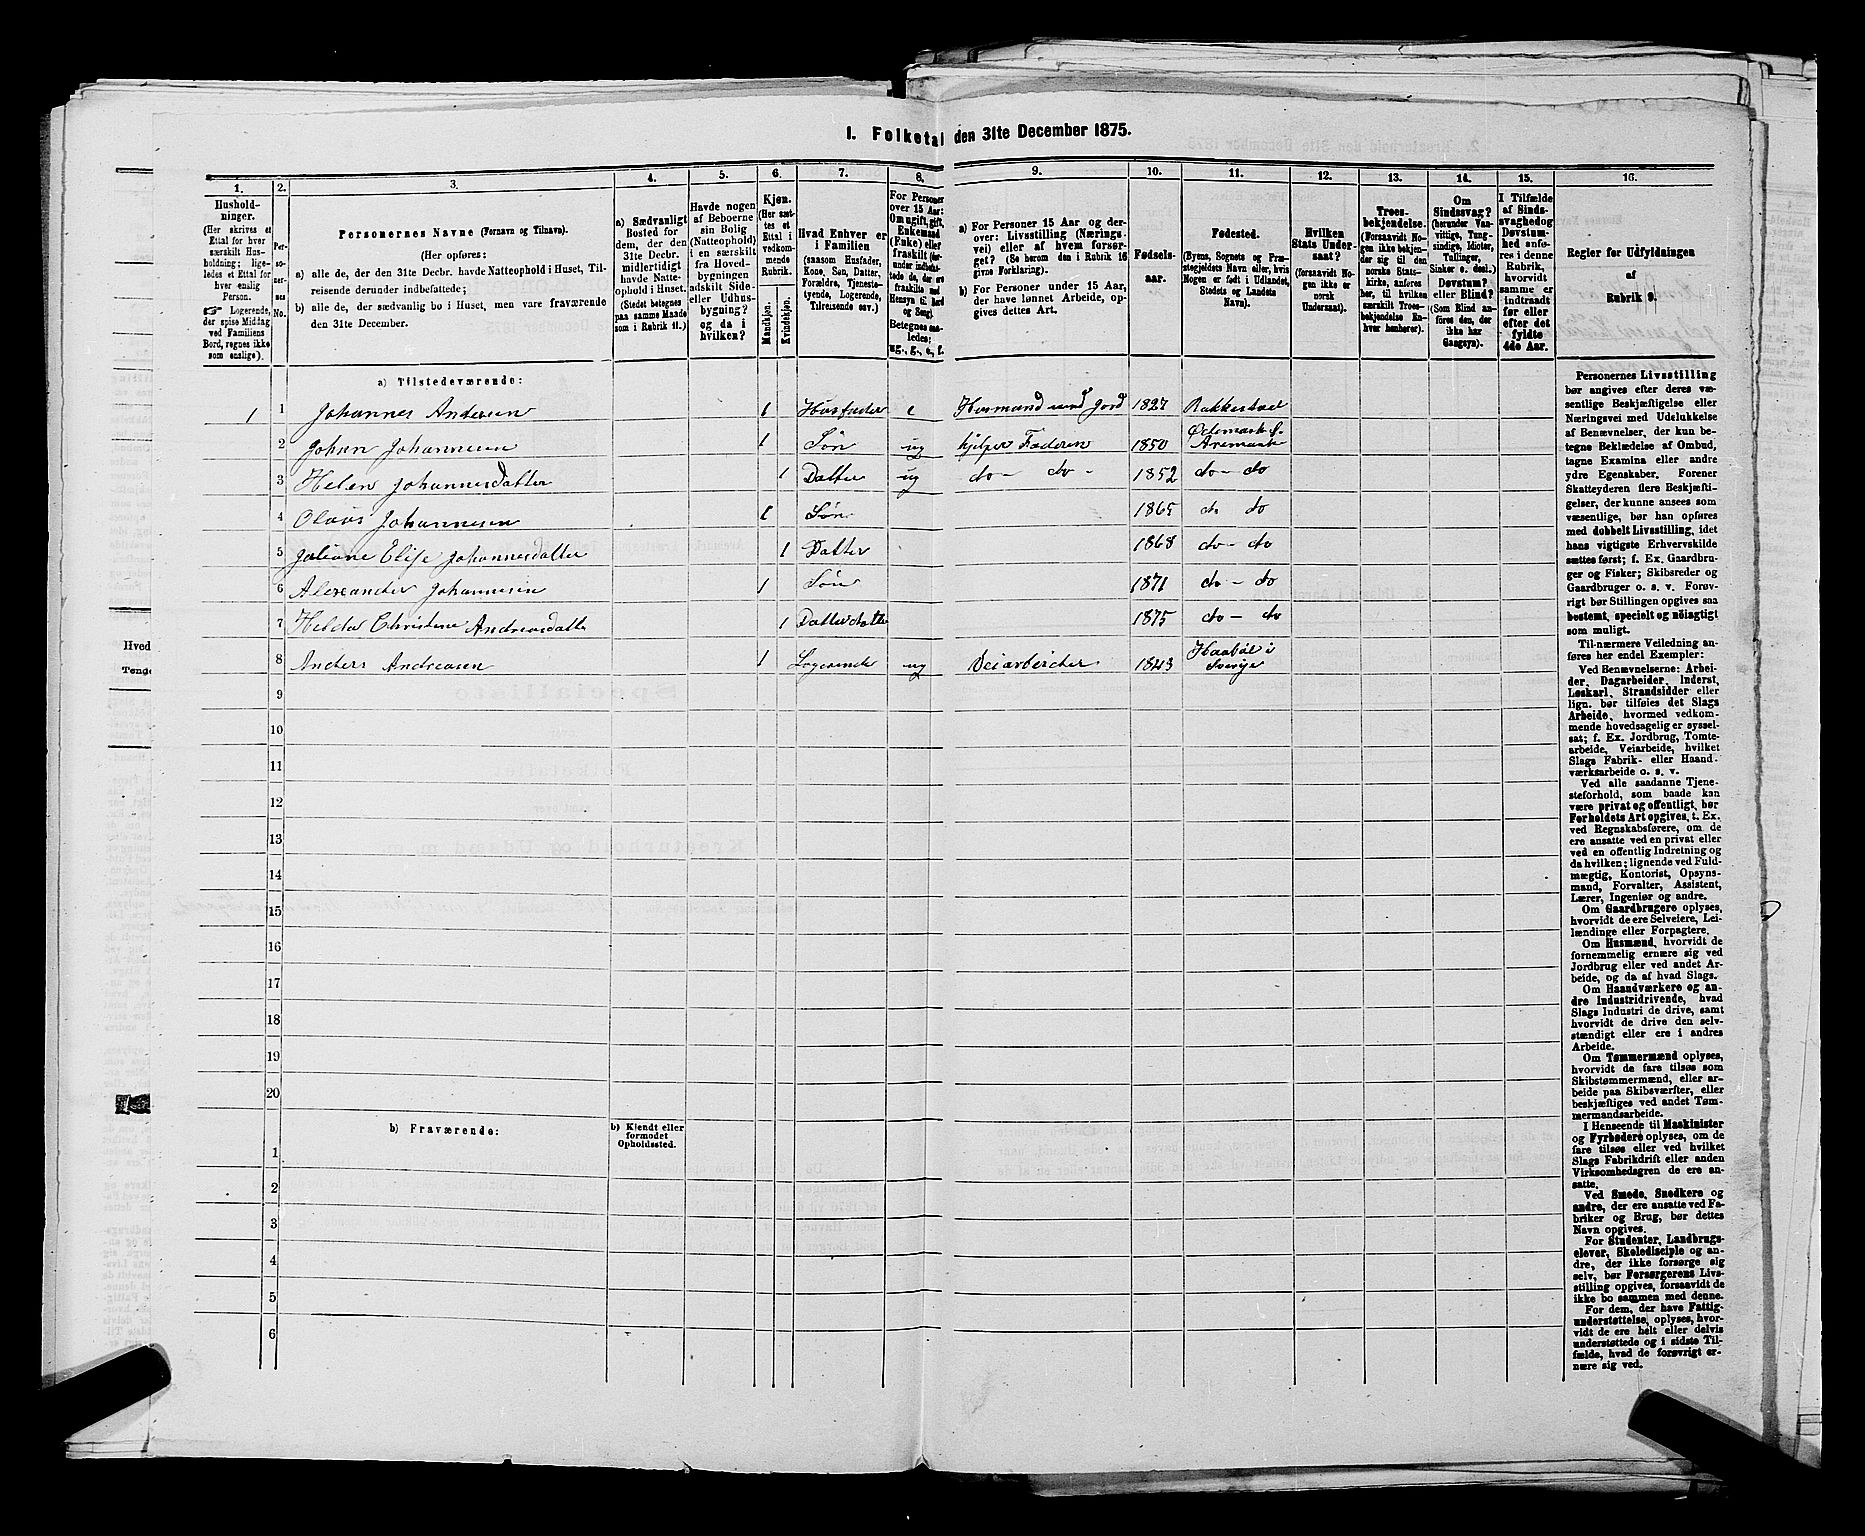 1. Folketal den 31te December 1875.
1.
Hushold-
ninger.
(Her skrives et
Ettal for hver
særskilt Hus-
holdning; lige-
ledes et Ettal for
hver enslig
Person.
☞ Logerende,
der spise Middag
ved Familiens
Bord, regnes ikke
som enslige).
2.
Per-
so-
ner-
nes
No.
3.
Personernes Navne (Fornavn og Tilnavn).
(Her opføres:
a) alle de, der den 31te Decbr. havde Natteophold i Huset, Til-
reisende derunder indbefattede;
b) alle de, der sædvanlig bo i Huset, men vare fraværende
den 31te December.
4.
a) Sædvanligt
Bosted for
dem, der den
31te Decbr.
midlertidigt
havde Natte-
ophold i Huset.
(Stedet betegnes
paa samme Maade
som i Rubrik 11.)
5.
Havde nogen
af Beboerne
sin Bolig
(Natteophold)
i en særskilt
fra Hoved-
bygningen
adskilt Side-
eller Udhus-
bygning?
og da i
hvilken?
6.
Kjøn.
(Her sæt-
tes et
Ettal i
vedkom-
mende
Rubrik.
Mandkjøn.
Kvindekjøn.
7.
Hvad Enhver er
i Familien
(saasom Husfader,
Kone, Søn, Datter,
Forældre, Tjeneste-
tyende, Logerende,
Tilreisende osv.)
8.
For Personer
over 15 Aar:
Om ugift, gift,
Enkemand
(Enke) eller
fraskilt
Betegnes saa-
ledes:
ug., g., e., f.
9.
a) For Personer 15 Aar og der-
over: Livsstilling (Nærings-
vei) eller af hvem forsør-
get? (Se herom den i Rubrik 16
givne Forklaring).
b) For Personer under 15 Aar,
der have lønnet Arbeide, op-
gives dettes Art.
10.
Fødsels-
aar.
11.
Fødested.
(Byens, Sognets og Præ-
stegjeldets Navn eller, hvis
Nogen er født i Udlandet,
Stedets og Landets
Navn).
12.
Hvilken
Stats Under-
saat?
(forsaavidt No-
gen ikke er
norsk
Undersaat).
13.
Troes-
bekjendelse.
(Forsaavidt No-
gen ikke bekjen-
der sig til den
norske Stats-
kirke, anføres
her, til hvilken
særskilt Troes-
bekjendelse En-
hver henhører).
14.
Om
Sindssvag?
(herunder Van-
vittige, Tung-
sindige, Idioter,
Tullinger,
Sinker o. desl.)
Døvstum?
eller Blind?
(Som Blind an-
føres den, der
ikke har
Gangsyn).
15.
I Tilfælde
af Sinds-
svaghed og
Døvstum-
hed anfø-
res i denne
Rubrik,
hvorvidt
samme er
indtraadt
før eller
efter det
fyldte
4de Aar.
16.
Regler for Udfyldningen
af
Rubrik 9.
a) Tilstedeværende:
1 1 Johannes Andersen 1 Husfader e Husmand med Jord 1827 Rakkestad
2 Johan Johannesen 1 Søn ug hjelper Faderen 1850 Ødemark S. Aremark
3 Helen Johannesdatter 1 Datter ug do - do - 1852 do - do
4 Olaus Johannesen 1 Søn 1865 do do
5 Juliane Elise Johannesdatter 1 Datter 1868 do - do
6 Alexander Johannesen 1 Søn 1871 do - do
7 Helda Christine Andreasdatte 1 Datterdatte 1875 do - do
8 Anders Andreasen 1 Logerende ug Veiarbeider 1843 Haabøl i Sverige
9
10
11
12
13
14
15
16
17
18
19
20
b) Fraværende:
b) Kjendt eller
formodet
Opholdssted.
1
2
3
4
5
6
Personernes Livsstilling
bør angives efter deres væ-
sentlige Beskjæftigelse eller
Næringsvei med Udelukkelse
af Benævnelser, der kun be-
tegne Beklædelse af Ombud,
tagne Examina eller andre
ydre Egenskaber. Forener
Skatteyderen flere Beskjæfti-
gelser, der kunne ansees som
væsentlige, bør han opføres
med dobbelt Livsstilling, idet
hans vigtigste Erhvervskilde
sættes først; f. Ex. Gaardbru-
ger og Fisker; Skibsreder og
Gaardbruger o. s. v. Forøv-
rigt bør Stillingen opgives saa
bestemt, specielt og nøiagtigt
som muligt.
Til nærmere Veiledning an-
føres her endel Exempler:
Ved Benævnelserne: Arbei-
der, Dagarbeider, Inderst,
Løskarl, Strandsidder eller
lign. bør tilføies det Slags
Arbeide, hvormed vedkom-
mende hovedsagelig er syssel-
sat; f. Ex. Jordbrug, Tomte-
arbeide, Veiarbeide, hvilket
Slags Fabrik- eller Haand-
værksarbeide o. s. v.
Ved alle saadanne Tjene-
steforhold, som baade kan
være privat og offentligt, bør
Forholdets Art opgives, t. Ex.
ved Regnskabsførere, om de
ere ansatte ved en privat eller
ved en offentlig Indretning og
da hvilken; lignende ved Fuld-
mægtig, Kontorist, Opsyns-
mand, Forvalter, Assistent,
Lærer, Ingeniør og andre.
Om Gaardbrugere oplyses,
hvorvidt de ere Selveiere, Lei-
lændinge eller Forpagtere.
Om Husmænd, hvorvidt de
fornemmelig ernære sig ved
Jordbrug eller ved andet Ar-
beide, og da af hvad Slags.
Om Haandværkere og an-
dre Industridrivende, hvad
Slags Industri de drive, samt
hvorvidt de drive den selv-
stændigt eller ere i andres
Arbeide.
Om Tømmermænd oplyses,
hvorvidt de fare tilsøs som
Skibstømmermænd, eller ar-
beide paa Skibsværfter, eller
beskjæftiges ved andet Tøm-
mermandsarbeide.
I Henseende til Maskinister
og Fyrbødere oplyses, om de
fare tilsøs eller ved hvilket
Slags Fabrikdrift eller anden
Virksomhedsgren de ere an-
satte.
Ved Smede, Snedkere og
andre, der ere ansatte ved Fa-
briker og Brug, bør dettes
Navn opgives.
For Studenter, Landbrugs-
elever, Skoledisciple og an-
dre, der ikke forsørge sig
selv, bør Forsørgerens Livs-
stilling opgives, forsaavidt de
ikke bo sammen med denne.
For dem, der have Fattig-
understøttelse, oplyses, hvor-
vidt de ere helt eller delvis
understøttede og i sidste Til-
fælde, hvad de forøvrigt er-
nære sig ved.